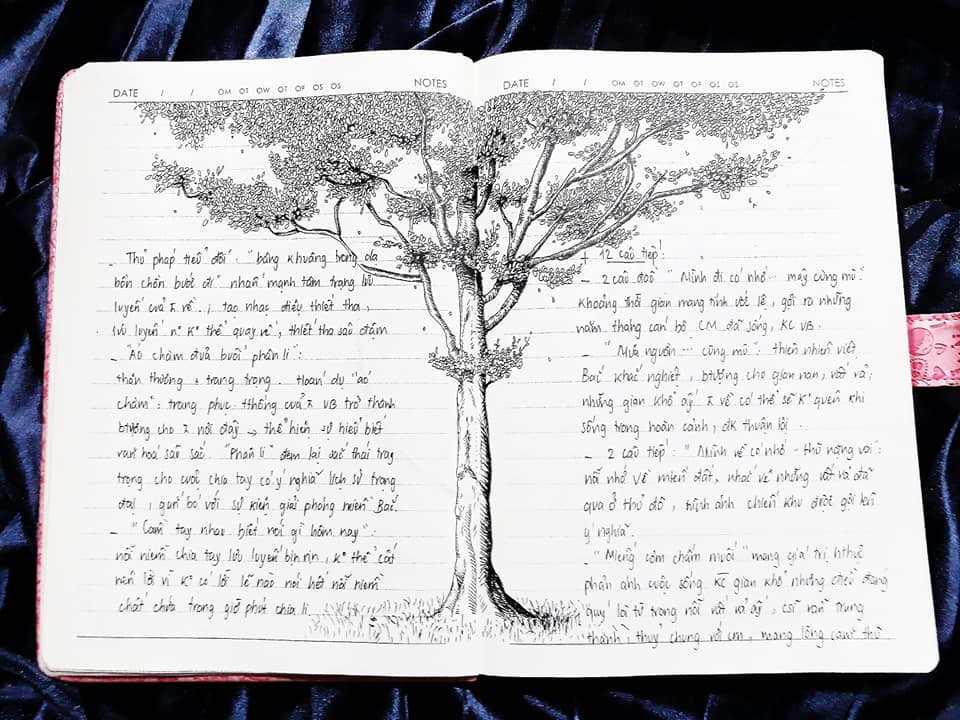 DATE / / OM OT OW OT OF OS OS NOTES
_ Thủ pháp tiểu đối: "bâng khuâng trong dạ
bồn chồn bước đi" nhấn mạnh tâm trạng lưu
luyến của ... về ; tạo nhạc điệu thiết tha,
lưu luyến ... K° thể quay về, thiết tha sâu đậm
_ "Áo chàm đưa buổi phân li":
thân thương + trang trọng. Hoán dụ "áo
chàm": trang phục tthống của ... VB trở thành
btượng cho ... nơi đây → thể hiện sự hiểu biết
văn hoá sâu sắc. "Phân li" đem lại sắc thái tray
trọng cho cuộc chia tay có ý nghĩa lịch sử trọng
đại, gắn bó với sự kiện giải phóng miền Bắc.
_ "Cầm tay nhau biết nói gì hôm nay":
nỗi niềm chia tay lưu luyến bịn rịn, K° thể cất
nên lời vì K° có lời lẽ nào nói hết nỗi niềm
chất chứa trong giờ phút chia li.
DATE / / OM OT OW OT OF OS OS NOTES
+ 12 câu tiếp:
_ 2 câu đầu "Mình đi có nhớ ... mây cùng mù":
Khoảng thời gian mang tính ước lệ, gợi ra những
năm tháng cán bộ CM đã sống, KC VB.
_ "Mưa nguồn ... cùng mù": thiên nhiên Việt
Bắc khắc nghiệt, btượng cho gian nan, vất vả;
những gian khổ ấy ... về có thể sẽ K° quên khi
sống trong hoàn cảnh, đk thuận lợi.
_ 2 câu tiếp: "Mình về có nhớ - thù nặng vai":
nỗi nhớ về miền đất, nhắc về những vất vả đã
qua ở thủ đô, hình ảnh chiến khu được gợi lên
ý nghĩa.
_ "Miếng cơm chấm muối" mang giá trị hthực
phản ánh cuộc sống KC gian khổ nhưng điều đáng
quý là từ trong nỗi vất vả ấy, csĩ vẫn trung
thành, thuỷ chung với cm, mang lòng căm thù